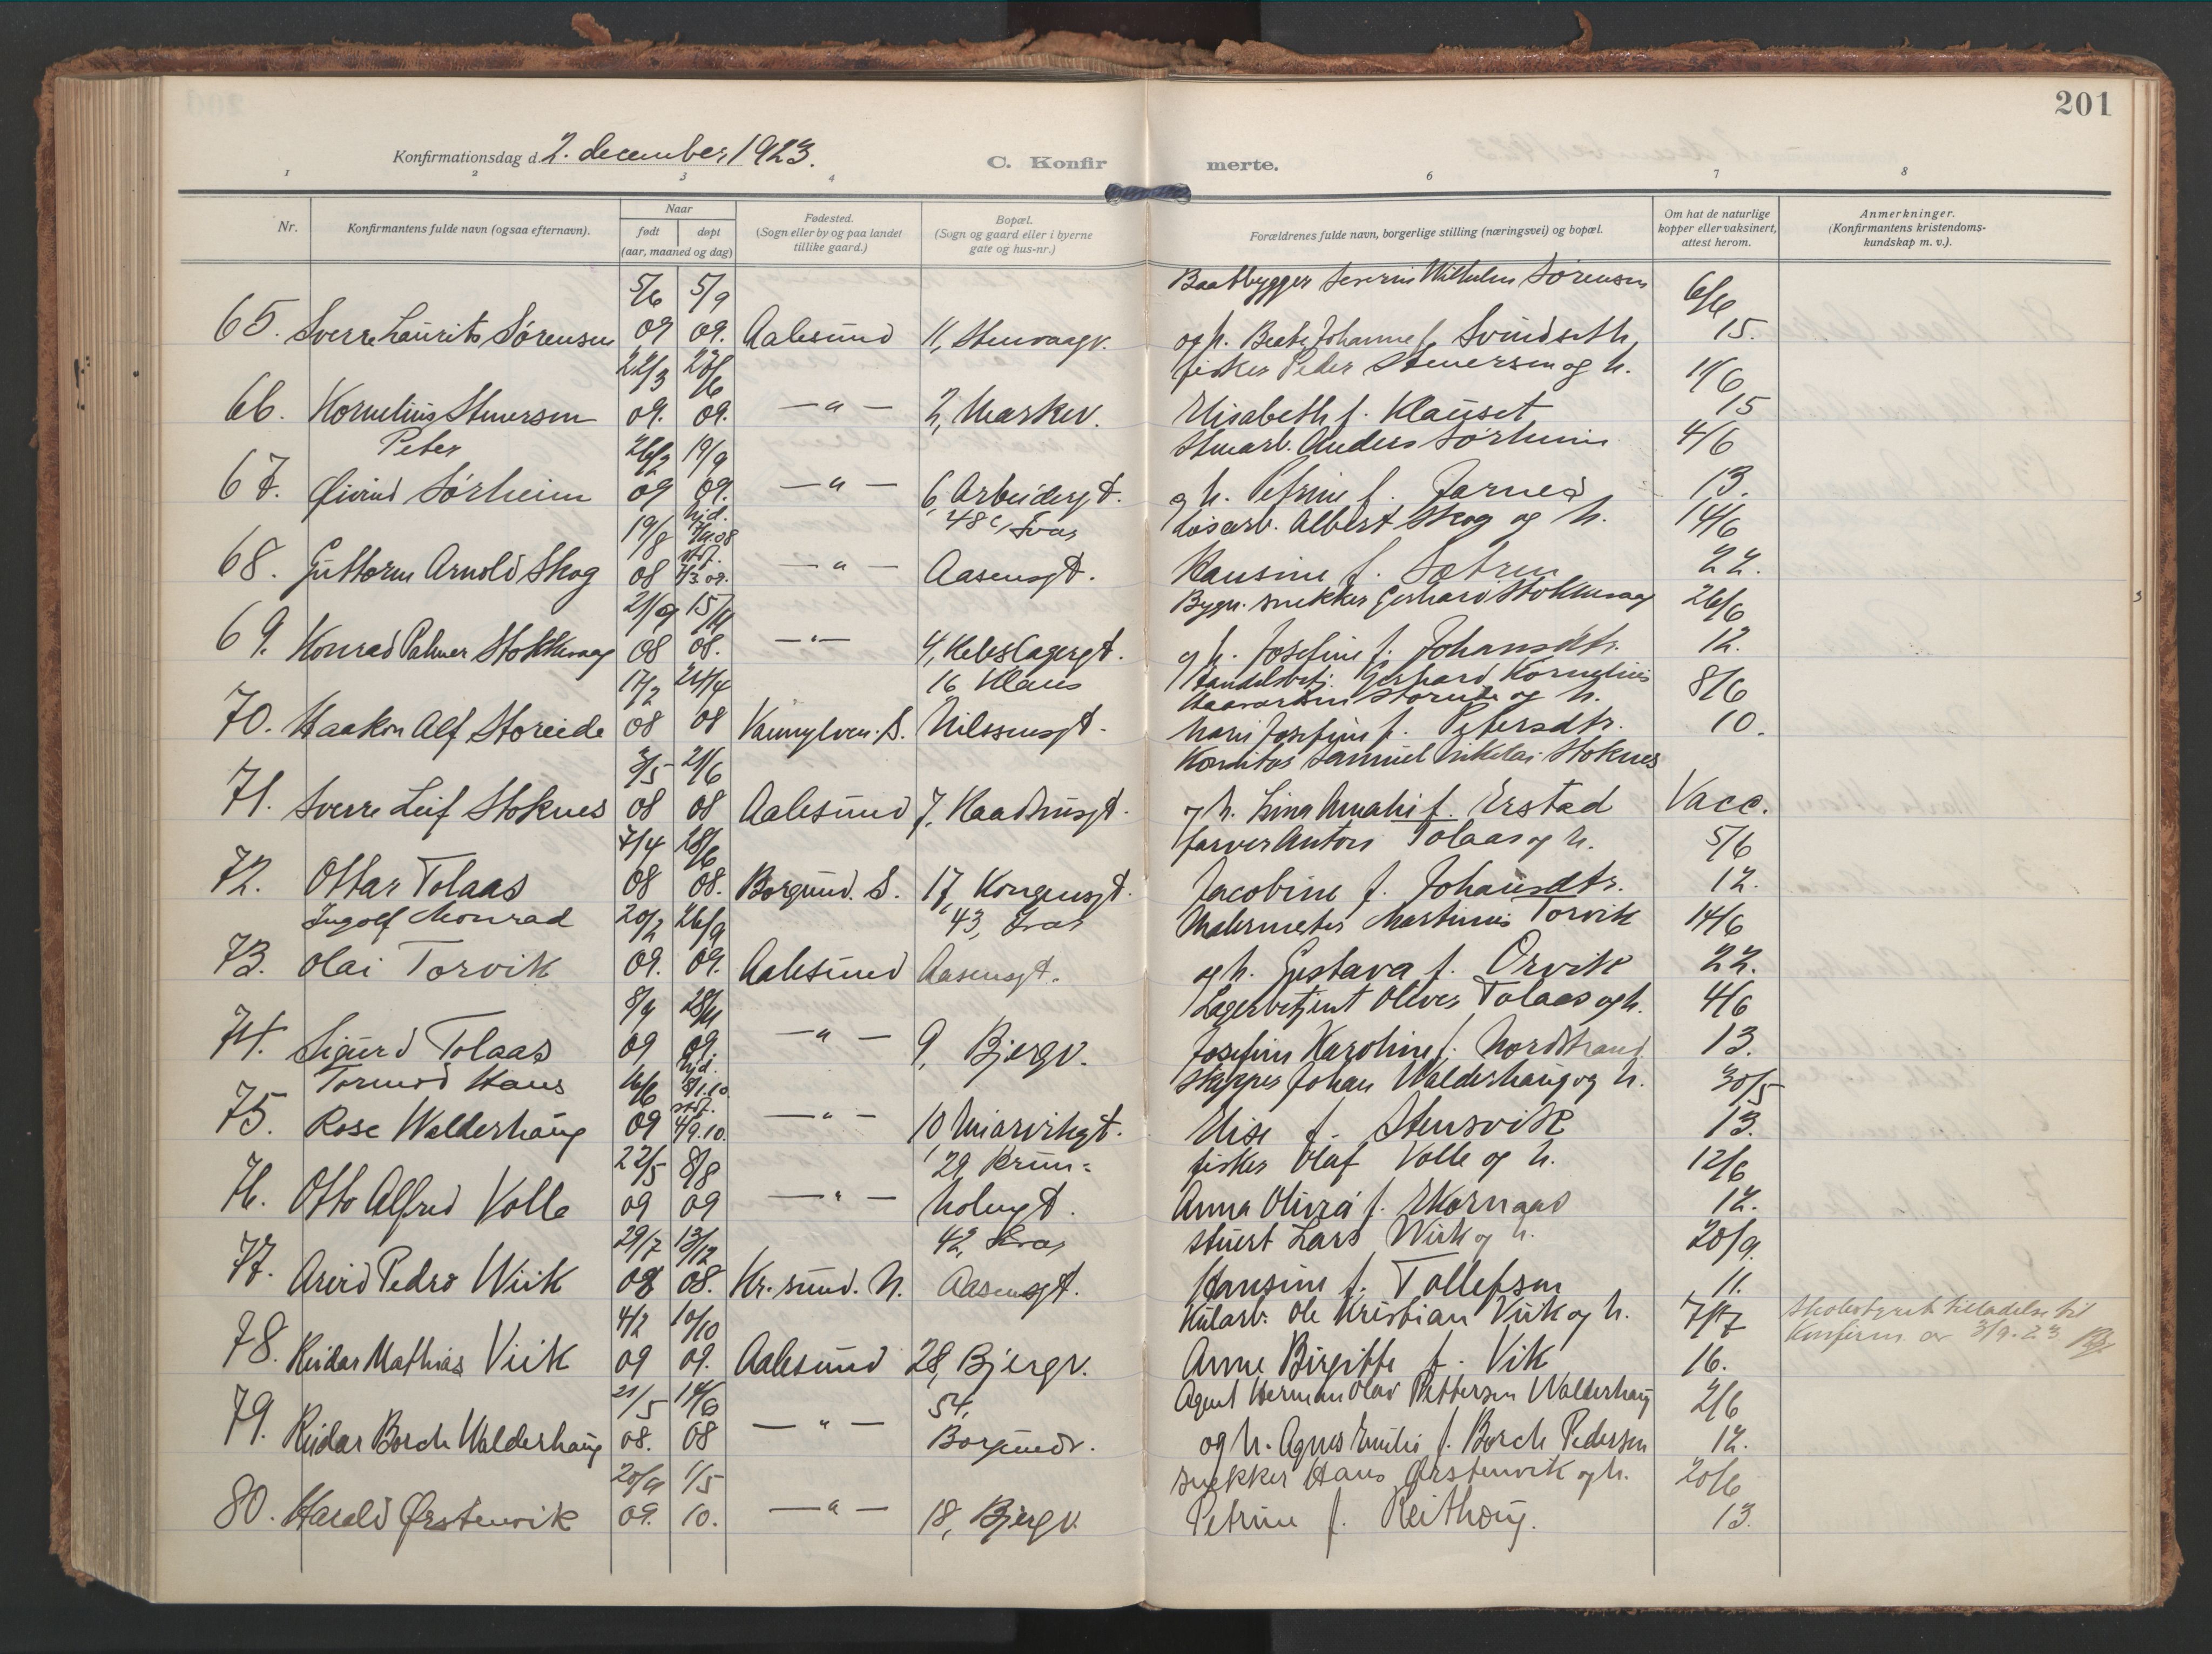 201
Konfirmationsdag d. 2. december 1923.
C. Konfirmerte.
1 2 3 4 6 7 8
Nr.
Konfirmantens fulde navn (ogsaa efternavn).
Naar
født døpt
(aar, maaned og dag)
Fødested.
(Sogn eller by og paa landet
tillike gaard.)
Bopæl.
(Sogn og gaard eller i byerne
gate og hus-nr.)
Forældrenes fulde navn, borgerlige stilling (næringsvei) og bopæl.
Om hat de naturlige
kopper eller vaksinert,
attest herom.
Anmerkninger.
(Konfirmantens kristendoms-
kundskap m. v.).
5/6 5/9 Baatbygger Severin Wilhelm Sørensen 6/6
65. Sverre Laurits Sørensen 09 09. Aalesund 11, Stenvaagv. og h. Beate Johanne f. Svindseth, 15.
22/3 20/6 fisker Peder Stenersen og h. 11/6
66. Kornelius Stenersen 09. 09. — " — 2, Marken. Elisabeth f. Klauset 15
Peter 26/2 19/9 Stuearb. Anders Sørheim 4/6
67. Øivind Sørheim 09 09. — " — 6, Arbeidergt. og h. Petrine f. Jarnes 13.
19/8 hjd. 7/11.08 48c, Ivar Løsarb. Albert Skog og h. 14/6
68. Guttorm Arnold Skog 08 stdf. 4/3 09. — " — Aasensgt. Hansine f. Sætren 22.
21/9 15/11 Bygn. snekker Gerhard Stokkevaag 26/6
69. Konrad Palmer Stokkevaag 08 08. — " — 4, Rebslagergt. og h. Josefine f. Johansdtr. 12.
17/2 24/4 16 Klaus Handelsbetj. Gerhard Kornelius 8/6
Haavardsen Storeide og h.
70. Haakon Alf Storeide 08 08 Vannylven. S. Nilssensgt. Marie Josefine f. Petersdtr. 10.
3/5 21/6 Konditor Samuel Nikolai Stoknes
71. Sverre Leif Stoknes 08 08 Aalesund 7, Raadhusgt. og h. Lina Amalie f. Erstad Vacc.
7/4 28/6 farver Anton Tolaas og h. 5/6
72. Ottar Tolaas 08 08. Borgund. S. 17, Kongensgt. Jacobine f. Johansdtr. 12.
Ingolf Monrad 20/2 26/9 43, Ivar Malermester Martinus Torvik 14/6
73. Olai Torvik 09. 09. Aalesund Aasensgt. og h. Gustava f. Orvik 22.
8/9 28/11 Lagerbetjent Oliver Tolaas og h. 4/6
74. Sigurd Tolaas 09 09. — " — 9, Bjergv. Josefine Karoline f. Nordstrand 13.
Tormod Hans 16/6 hjd. 18/1.10. Skipper Johan Walderhaug og h. 30/5
75. Rose Walderhaug 09 stdf. 4/9.10. — " — 10 Elise f. Stensvik 13.
22/5 8/8 29 fisker Olaf Volle og h. 12/6
76. Otto Alfred Volle 09 09 — " — holmgt. Anna Olivia f. Skornaas 12.
29/7 13/12 42, Ivar stuert Lars Wiik og h. 20/9.
77. Arvid Pedro Wiik 08 08. Kr. sund. N. Aasensgt. Hansine f. Tollefsen 11.
4/2 10/10 Kularb. Ole Kristian Viik og h. 7/7 Skolestyrets tilladelse til
Konfirm. av 3/9. 23
78. Reidar Mathias Viik 09 09. Aalesund 28, Bjergv. Anne Birgitte f. Vik 16.
21/5 14/6 54, Agent Herman Olav Pettersen Walderhaug 2/6
79. Reidar Borch Walderhaug 08. 08 — " — Borgundv. og h. Agnes Emilie f. Borch Pedersen 12.
20/9 1/5 snekker Hans Ørstenvik og h. 20/6
80. Harald Ørstenvik 09. 10. — " — 18, Bjergv. Petrine f. Reithaug. 13.